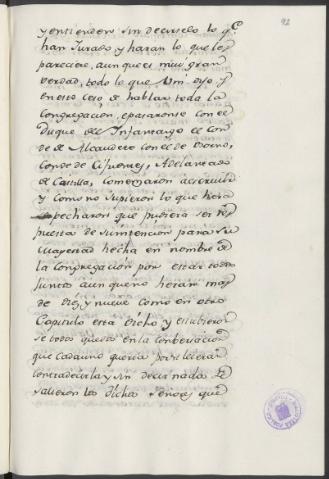 92
y entienden sin decirselo lo q.e
han Jurado y haran lo que les
pareciere, aunque es mui gran
verdad, todo lo que Vmi dijo y
en esto ceso de hablar toda la
Congregacion, e pasaronse con el
Duque del Infantazgo el Con
de de Alcaudete con el de Osorno,
Conde de Cifuentes, Adelantado
de Castilla, comenzaron a escrivir
y como no supieron lo que hera
sospecharon que pudiera ser res
puesta de su intencion para su
Magestad hecha en nombre de
la Congregacion por estar todos
juntos aunque no heran mas
de diez y nueve como en otro
Capitulo esta dicho y estubieron
se todos quedos en la conbersacion
que cada uno queria
contradecirla y sin decir nada se
salieron los dichos señores que